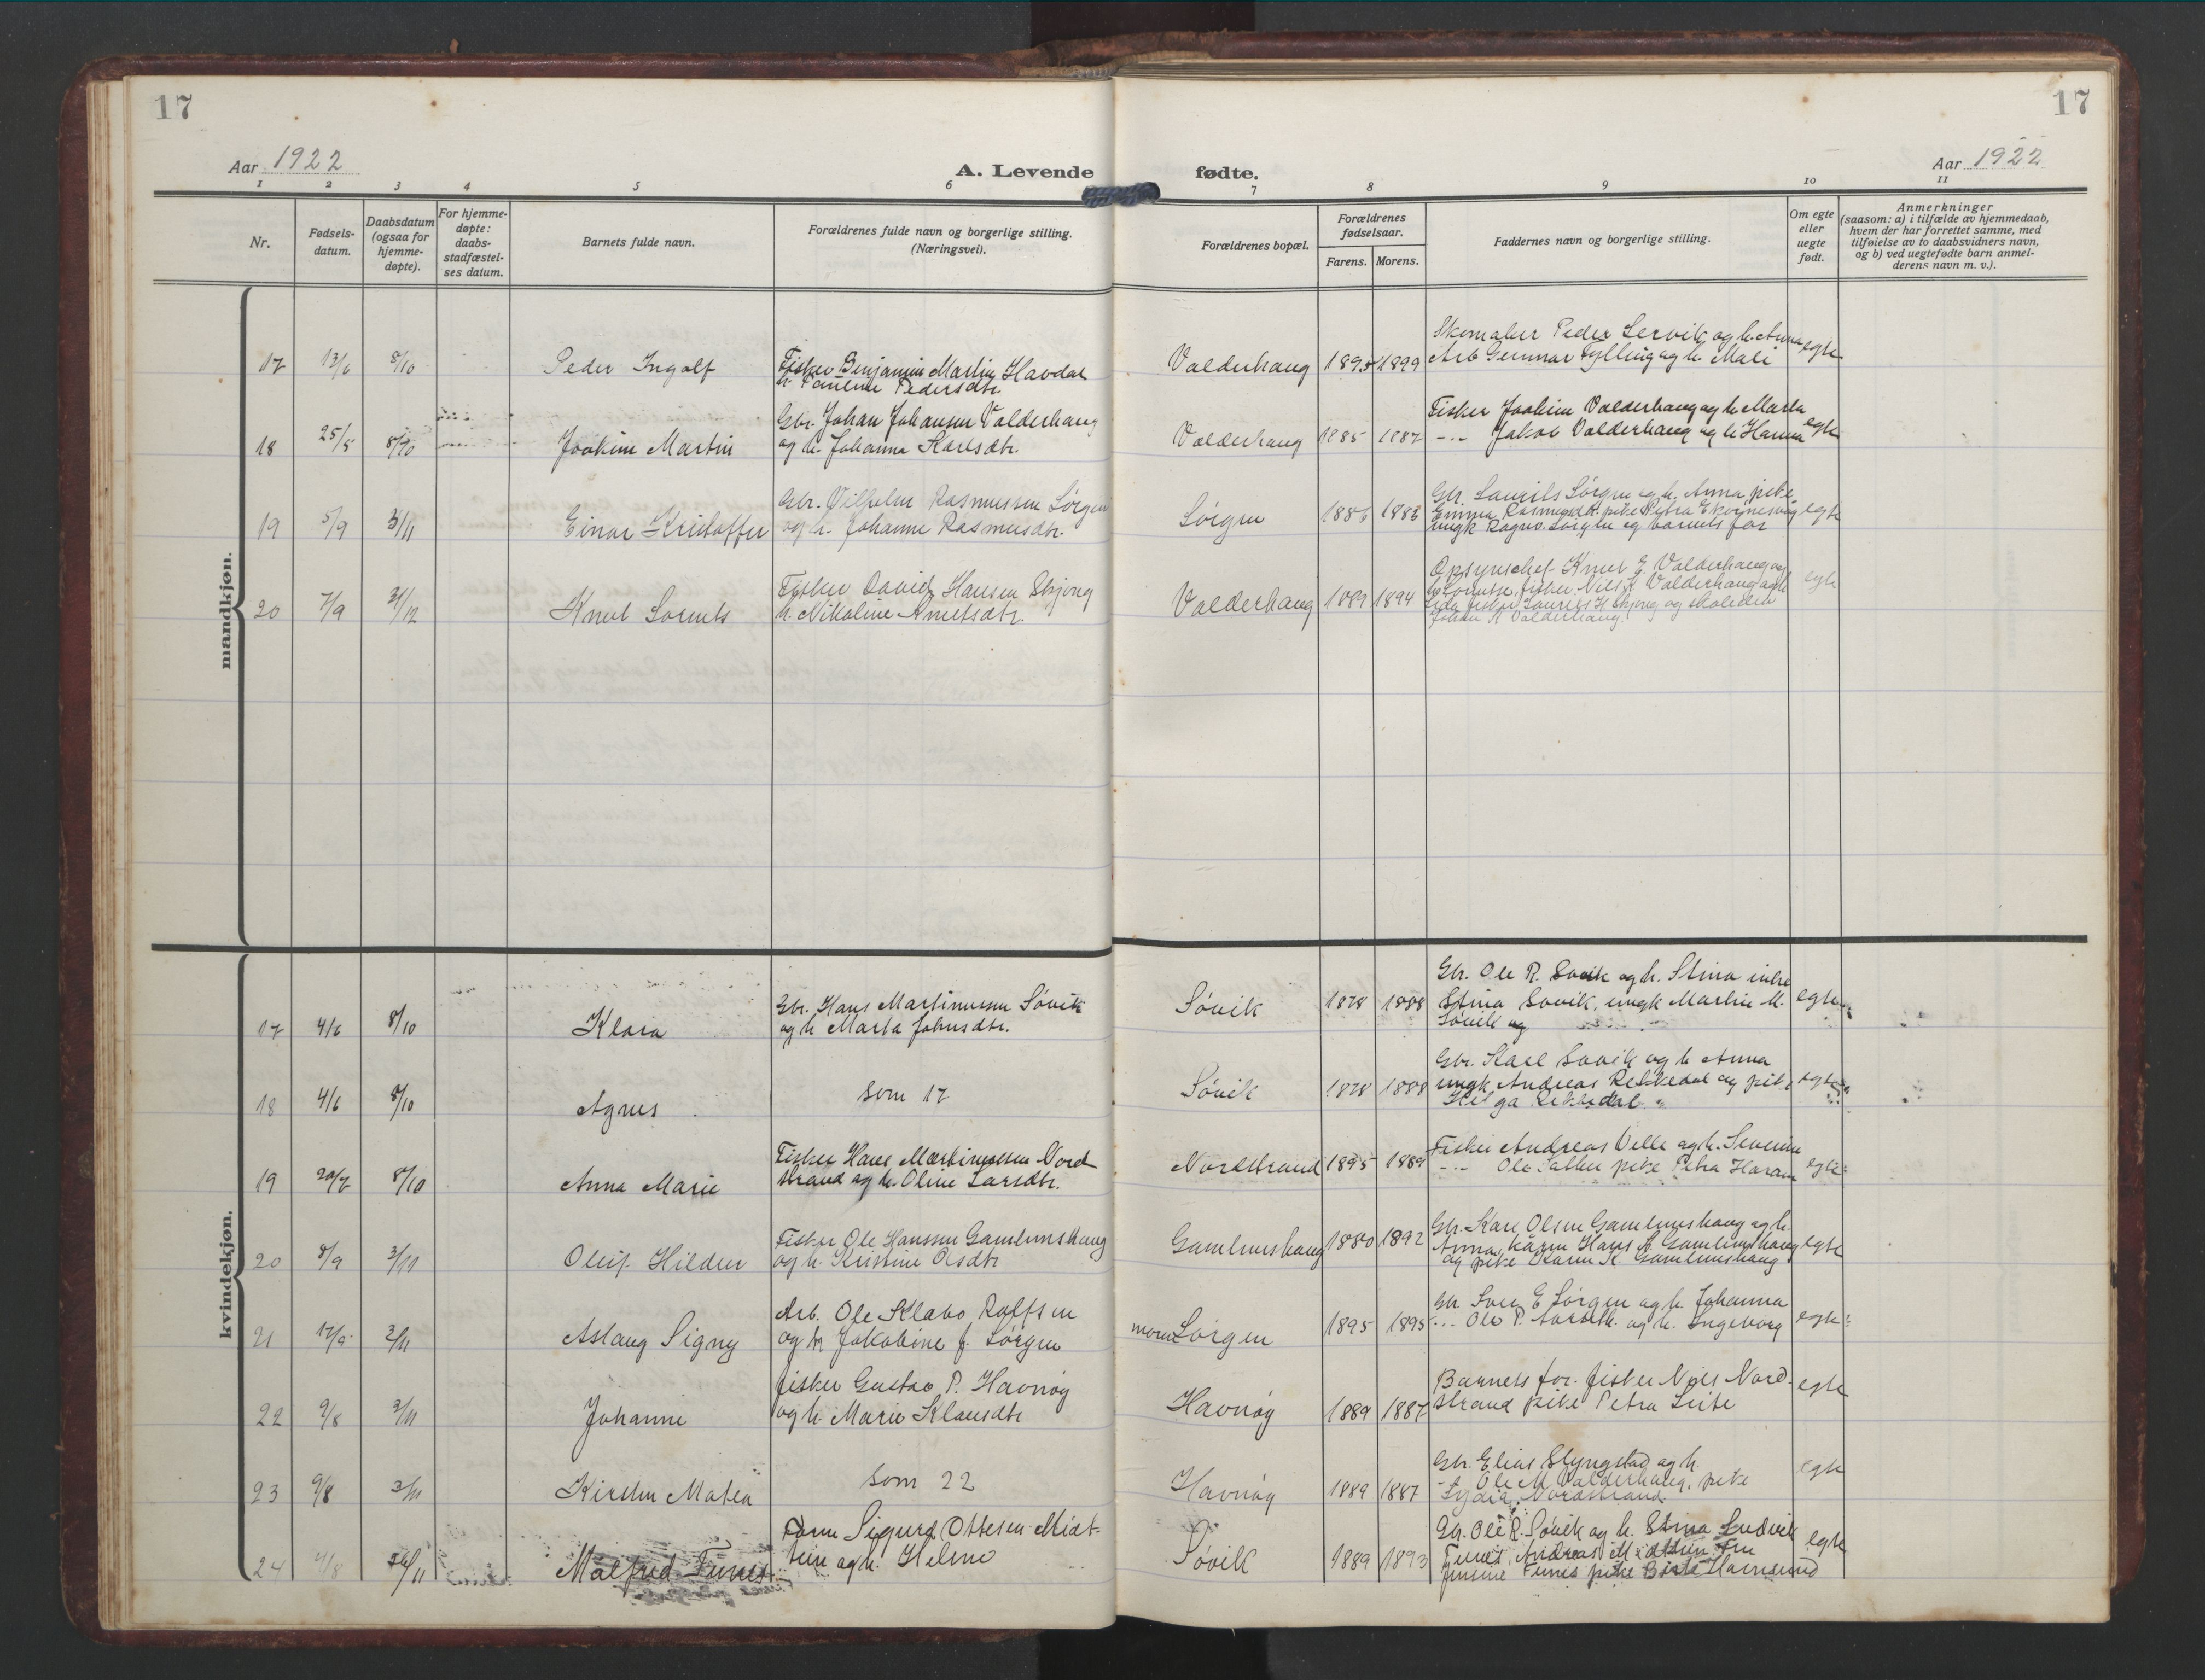 17
17
Aar 1922
A. Levende fødte.
Aar 1922
1 2 3 4 5 6 7 8 9 10 11
Nr.
Fødsels-
datum.
Daabsdatum
(ogsaa for
hjemme-
døpte).
For hjemme-
døpte:
daabs-
stadfæstel-
ses datum.
Barnets fulde navn.
Forældrenes fulde navn og borgerlige stilling.
(Næringsvei).
Forældrenes bopæl.
Forældrenes
fødselsaar.
Farens. Morens.
Faddernes navn og borgerlige stilling.
Om egte
eller
uegte
født.
Anmerkninger
(saasom: a) i tilfælde av hjemmedaab,
hvem der har forrettet samme, med
tilføielse av to daabsvidners navn,
og b) ved uegtefødte barn anmel-
derens navn m. v.).
mandkjøn.
17 13/6 8/10 Peder Ingolf
Fisker Benjamin Martin Havdal
h. Pauline Pedersdtr.
Valderhaug 1895 1899
Skomaker Peder Lervik og h. Anna
Arb Gunnar Fylling og h. Mali
egte
18 25/5 8/10 Joakim Martin
Gbr. Johan Johansen Valderhaug
og h. Johanna Karlsdtr.
Valderhaug 1885 1887
Fisker Joakim Valderhaug og h Marta
-"- Jakob Valderhaug og h Hanna
egte
19 5/9 3/11 Einar Kristoffer
Gbr. Vilhelm Rasmussen Sørgen
og h. Johanne Rasmusdtr.
Sørgen 1886 1886
Gbr. Laurits Sørgen og h. Anna, pike
Emma Rasmusdtr. pike Petra
ungk Ragnv. Sørgen og barnets far
egte
20 7/9 31/12 Knut Lorents
Fisker David Hansen Skjong
h. Nikoline Knutsdtr.
Valderhaug 1889 1894
Opsynschef Knut E Valderhaug og
h Lorentse, fisker Nils K Valderhaug og h
fisker Laurits H Skjong og skoleelev
Johan K Valderhaug.
egte
kvindekjøn.
17 4/6 8/10 Klara
Gbr. Hans Martinussen Søvik
og h Marta Johnsdtr.
Søvik 1878 1888
Gbr. Ole R. Søvik og h. Stina
Stina Søvik, ungk Martin M.
Søvik og
egte
18 4/6 8/10 Agnes
som 17
Søvik 1878 1888
Gbr. Karl Søvik og h Anna
ungk Andreas Rekkedal og pike
Helga Rekkedal
egte
19 20/7 8/10 Anna Marie
Fisker Hans Martinussen Nord
strand og h. Oline Larsdtr.
Nordstrand 1895 1889
Fisker Andreas Velle og h. Severine
-"- Ole Sather pike Petra Haram
egte
20 8/9 3/11 Oleif Hildur
Fisker Ole Hanssen Gamlemshaug
og h. Kristine Olsdtr
Gamlemshaug 1880 1892
Gbr. Karl Olsen Gamlemshaug og h.
Anna, Hans A Gamlemshaug
og pike Karen K. Gamlemshaug
egte
21 17/9 3/11 Aslaug Signy
Arb. Ole Klabo Rolfsen
og h Jakobine f. Sørgen
Sørgen 1895 1895
Gbr. Sven E Sørgen og h. Johanna
-"- Ole P. og h. Ingeborg
egte
22 9/8 3/11 Johanne
fisker Gustav P. Havnøy
og h. Marie Klausdtr
Havnøy 1889 1887
Barnets far. fisker Nils Nord-
strand pike Petra
egte
23 9/8 3/11 Kirsten Matea
som 22
Havnøy 1889 1887
Gbr. Elias Slyngstad og h.
-"- Ole M Valderhaug, pike
Lydia Nordstrand.
egte
24 4/8 26/11 Målfrid Funes
Sigurd Ottesen Midt-
og h. Helene
Søvik 1889 1893
Gbr. Ole R. Søvik og h. Stina Ludvik
Funes, Andreas
Funes pike Havnsund
egte